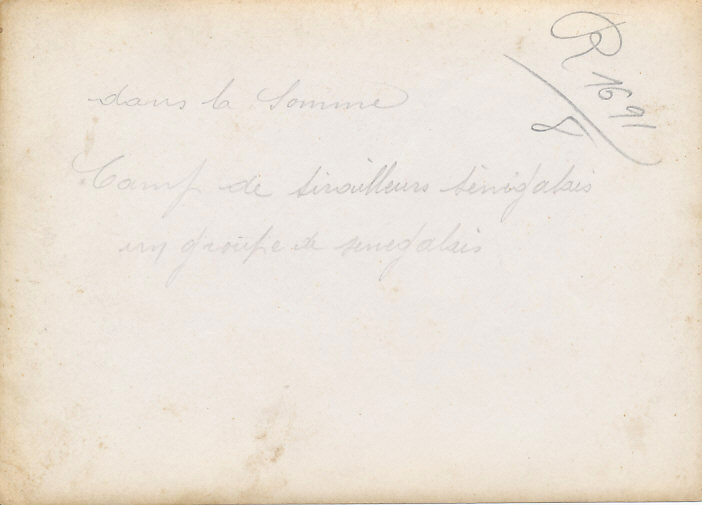 R 1691
8
dans la Somme
Camp de tirailleurs sénégalais
un groupe de senegalais